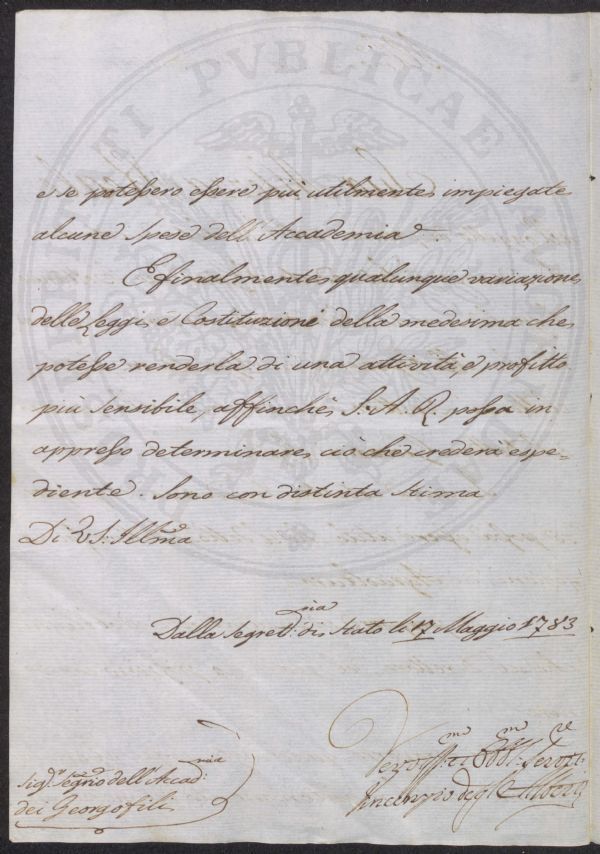 e se potessero essere più utilmente impiegate
alcune spese dell'Accademia
E finalmente qualunque variazione
delle Leggi, e Costituzioni della medesima che
potesse renderla di una attività, e profitto
più sensibile, affinchè S. A. R. possa in
appresso determinare ciò che crederà espe-
diente. Sono con distinta stima
Di VS: Illma
Dalla Segret:ria di Stato li 17 Maggio 1783
dell'Accad:mia
dei Georgofili
Obbl: Serv:re
Vincenzio degl'Alberti
PROSPERITATI PVBLICAE